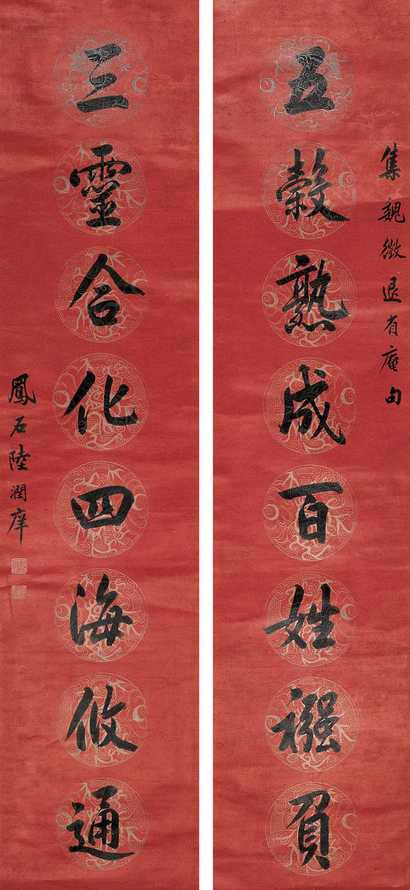 集魏徵退省庵句
五穀熟成百姓襁負
三靈合化四海攸通
鳳石陸潤庠